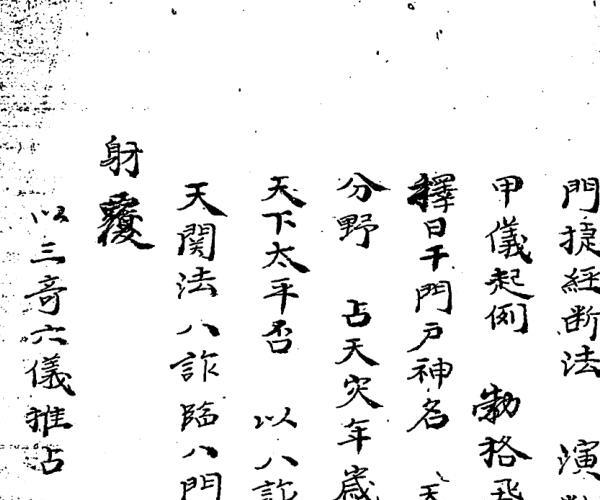 門捷経断法　演
甲儀起例　勃格飛
擇日千門户神名　天
分野　占天灾年歳
天下太平否　以八詐
天関法八詐臨八門
射覆
以三奇六儀推占